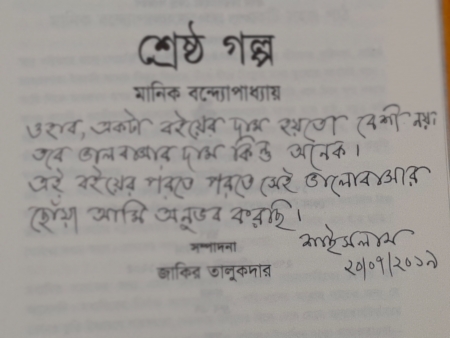 শ্রেষ্ঠ গল্প
মানিক বন্দ্যোপাধ্যায়
একটা বইয়ের দাম হয়তো বেশী নয়।
তবে ভালবাসার দাম কিন্তু অনেক।
এই বইয়ের পরতে পরতে সেই ভালোবাসার
ছোঁয়া আমি অনুভব করছি।
সম্পাদনা
জাকির তালুকদার